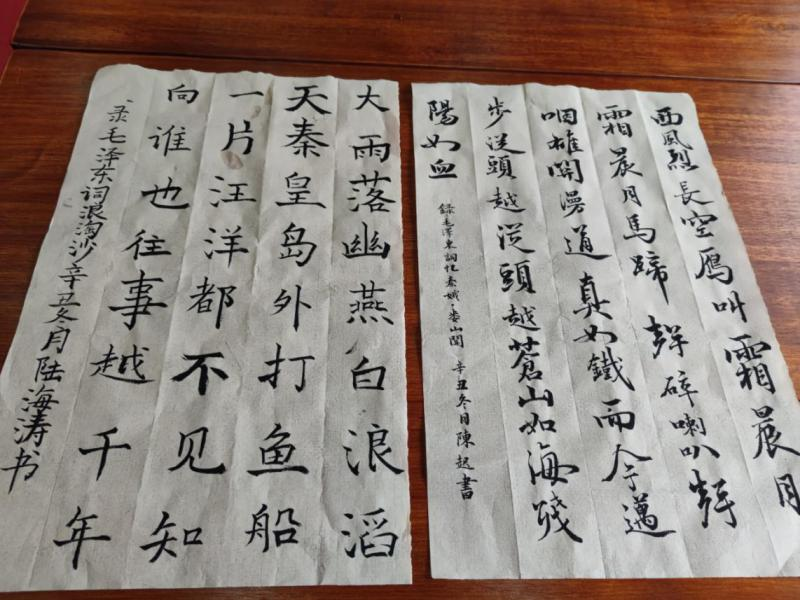 西風烈長空鴈叫霜晨月
霜晨月馬蹄聲碎喇叭聲
咽雄関漫道真如鐵而今邁
步從頭越從頭越蒼山如海殘
陽如血
錄毛澤東詞憶秦娥·娄山関 辛丑冬月陳起書
大雨落幽燕白浪滔
天秦皇岛外打鱼船
一片汪洋都不见知
向谁也往事越千年
录毛泽东词浪淘沙辛丑冬月陆海涛书